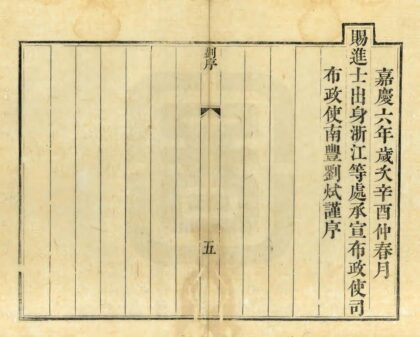 嘉慶六年歲次辛酉仲春月
賜進士出身浙江等處承宣布政使司
布政使南豐劉烒謹序
劉序
五